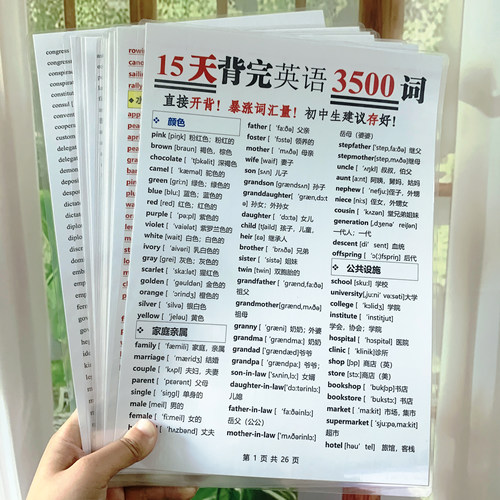 15天背完英语3500词
直接开背！暴涨词汇量！初中生建议存好！
❖ 颜色
pink [piŋk] 粉红色；粉红的
brown [braun] 褐色，棕色
chocolate [ 'tʃɔkəlit] 深褐色
camel [ 'kæməl] 驼色的
green [gri:n] 绿色；绿色的
blue [blu:] 蓝色，蓝色的
red [red] 红色；红色的
purple [ 'pə:pl] 紫色的
violet [ 'vaiəlit] 紫罗兰色的
white [wait] 白色；白色的
ivory [ 'aivəri] 乳白色的
gray [grei] 灰色；灰色的
scarlet [ 'ska:lət] 腥红色
golden [ 'gəuldən] 金色的
orange [ 'ɔrindʒ] 橙色的
silver [ 'silvə] 银白色
yellow [ 'jeləu] 黄色
❖ 家庭亲属
family [ 'fæmili] 家庭，亲属
marriage [ 'mæridʒ] 结婚
couple [ 'kʌpl] 夫妇，夫妻
parent [ 'pεərənt] 父母
single [ 'siŋgl] 单身的
male [meil] 男的
female [ 'fi:meil] 女的
[ 'hʌzbənd] 丈夫
father [ ' fa:ðə] 父亲
foster [ 'fɔstə] 领养的
mother [ ' mʌðə] 母亲
wife [waif] 妻子
son [sʌn] 儿子
grandson [grændsʌn] 孙子
granddaughter['græn,dɔ:tə] 孙女；外孙女
daughter [ 'dɔ:tə] 女儿
child [tʃaild] 孩子，儿童，
heir [εə] 继承人
brother [ 'brʌðə] 兄弟
sister [ 'sistə] 姐妹
twin [twin] 双胞胎的
grandfather [ 'grænd,fa:ðə]
祖父
grandmother[grænd,mʌðə]
祖母
granny [ 'græni] 奶奶；外婆
grandma [ 'grændma:] 奶奶
grandad ['grændæd]爷爷
grandpa [ 'grændpa:]爷爷
son-in-law ['sʌnin,lɔ:] 女婿
daughter-in-law['dɔ:tərinlɔ:]
儿媳
father-in-law [ 'fa:ðəinlɔ:]
岳父（公公）
mother-in-law ['mʌðərinlɔ:]
岳母（婆婆）
stepfather ['step,fa:ðə] 继父
stepmother[step,mʌðə]继母
uncle [ 'ʌŋkl] 叔叔，伯父
aunt [a:nt] 阿姨，舅妈，姑妈
nephew [ 'nefju:]侄子，外甥
niece [ni:s] 侄女，外甥女
cousin [ 'kʌzən] 堂兄弟姐妹
generation [,dʒenə' reiʃən]
一代人；一代
descent [di' sent] 血统
offspring [ 'ɔ:(:)fspriŋ] 后代
❖ 公共设施
school [sku:l] 学校
university[,ju:ni' və:səti]大学
college [ 'kɔlidʒ] 学院
institute [ 'institjut]
学会，协会；学院
hospital [ 'hɔspitəl] 医院
clinic [ 'klinik]诊所
shop [ʃɔp] 商店（英）
store [stɔ:]商店（美）
bookshop [ 'bukʃɔp]书店
bookstore [ 'bukstɔ:] 书店
market [ 'ma:kit] 市场，集市
supermarket [ 'sju:pə,ma:kit]
超市
hotel [həu' tel] 旅馆，客栈
第 1 页 共 26 页